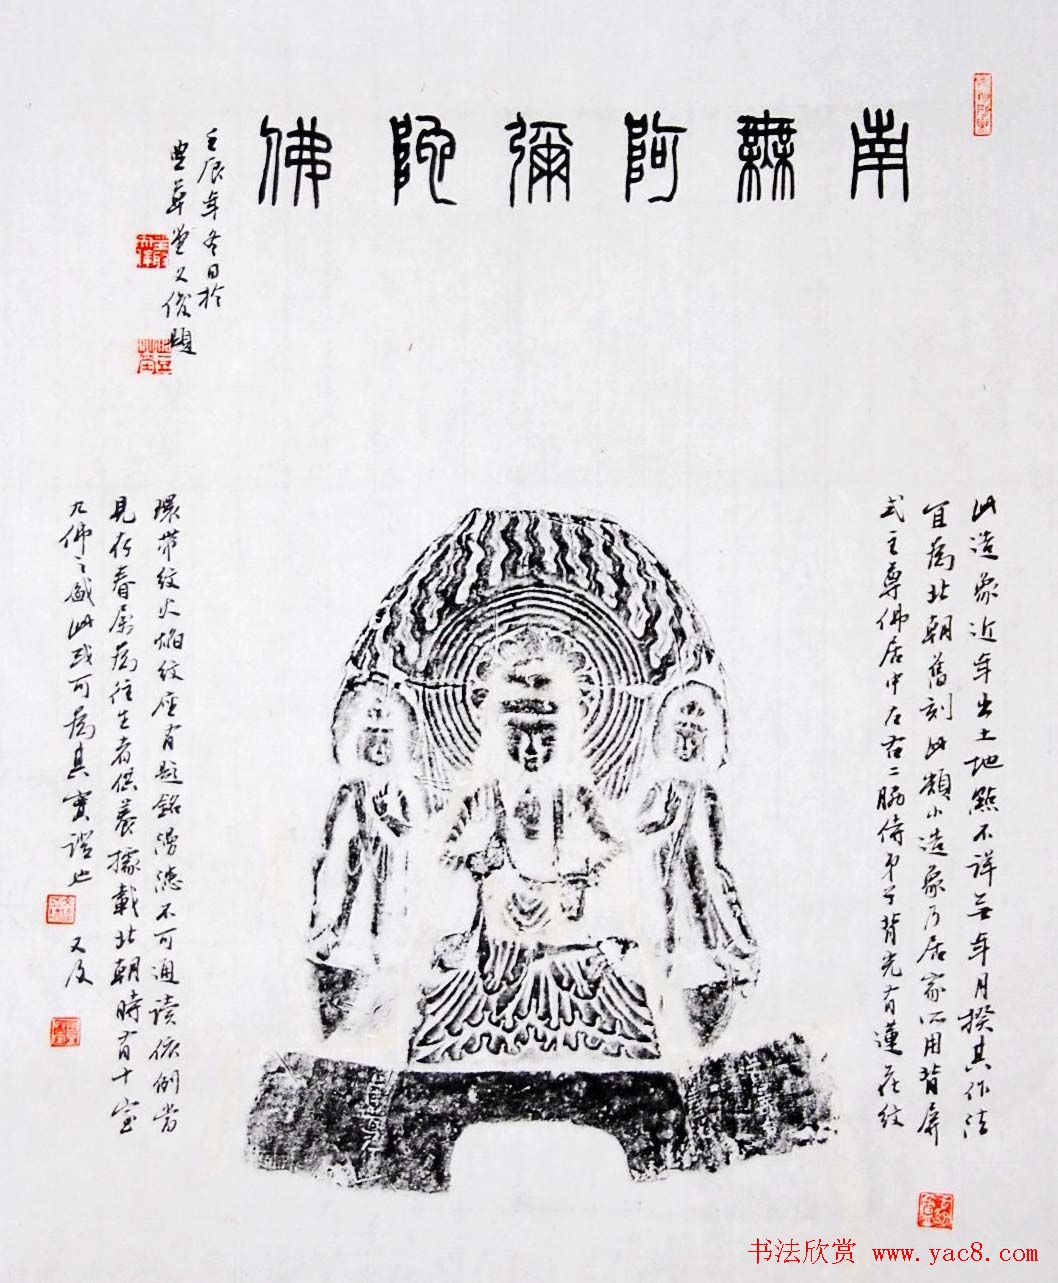 南無阿彌陀佛
壬辰年冬日於
華堂文俊題
此造象近年出土地點不詳無年月揆其作法
宜為北朝舊刻此類小造象乃居家所用背屏
式主尊佛居中左右二脇侍弟子背光有蓮花紋
環帶紋火焰紋座有題銘漫漶不可通讀依例當
見存眷屬為往生者供養據載北朝時有十室
九佛之盛此或可為其實證也
又及
书法欣赏 www.yac8.com